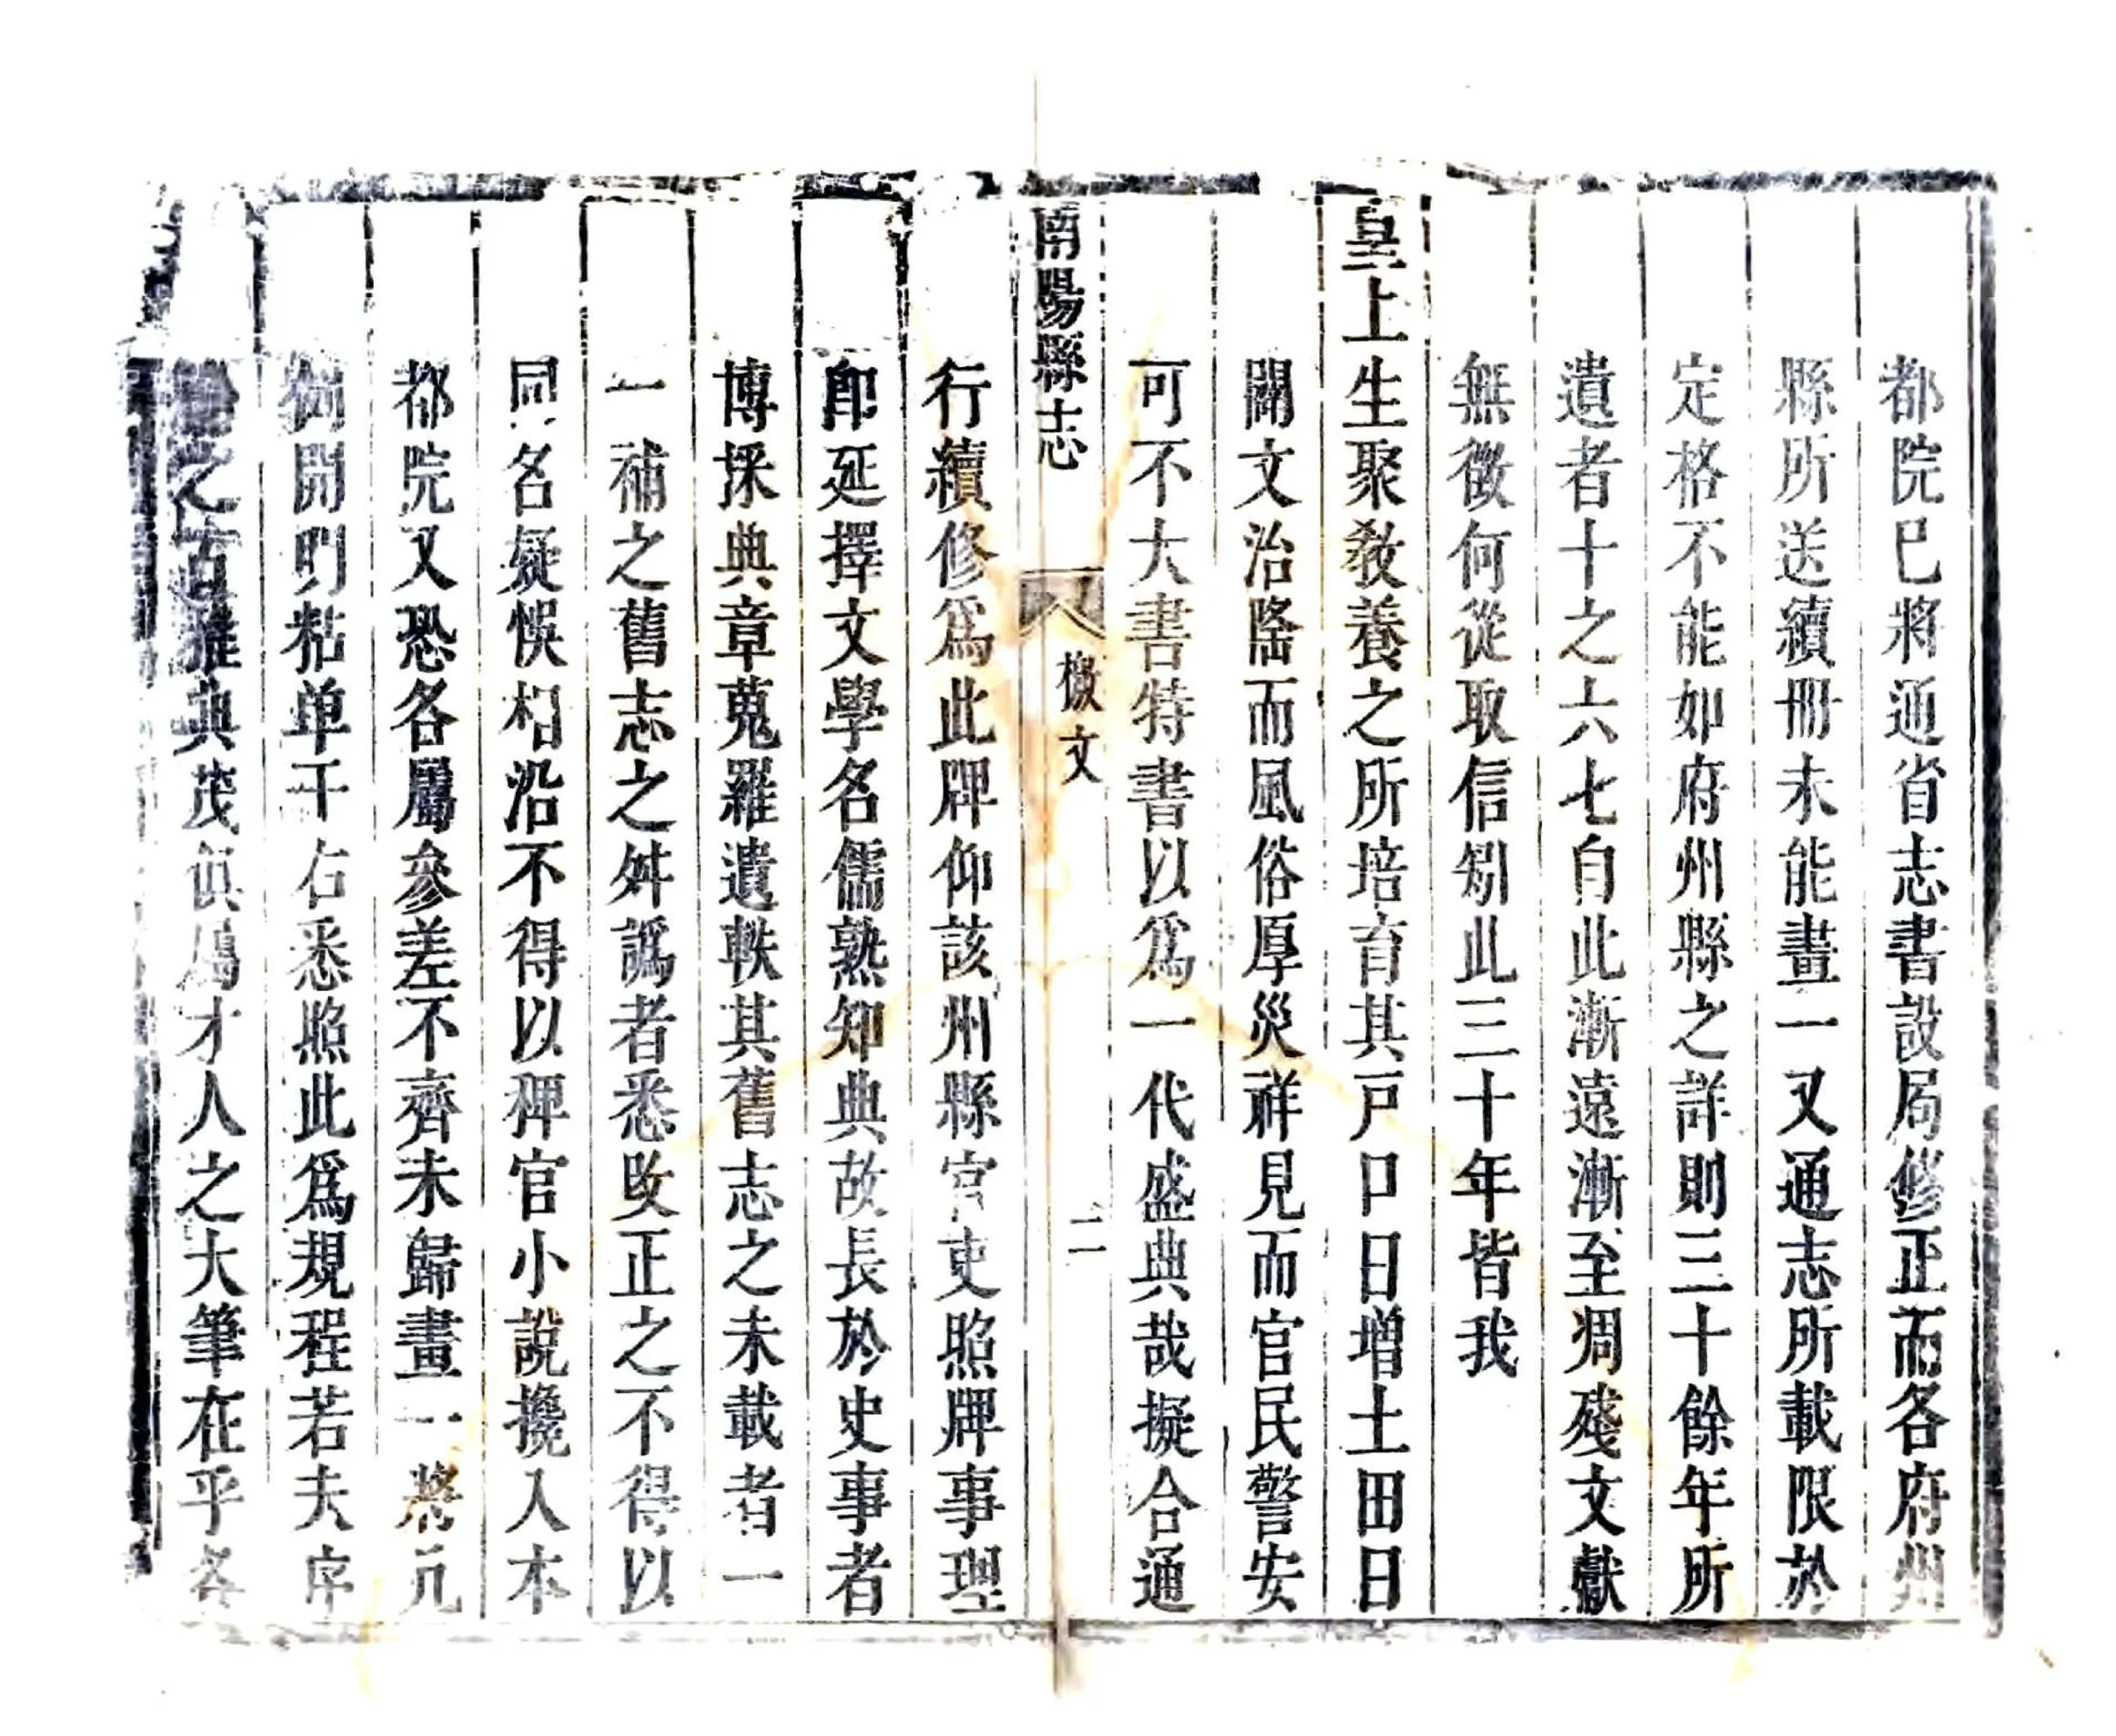 都院已將通省志書設局修正而各府州
縣所送續冊未能畫一又通志所載限於
定格不能如府州縣之詳則三十餘年所
遺者十之六七自此漸遠漸至凋殘文獻
無徵何從取信矧此三十年皆我
皇上生聚教養之所培育其戸口日增土田日
闢文治隆而風俗厚災祥見而官民警安
可不大書特書以爲一代盛典哉擬合通
南陽縣志
檄文
二
行續修爲此牌仰該州縣官吏照牌事理
即延擇文學名儒熟知典故長於史事者
博採典章蒐羅遺軼其舊志之未載者一
一補之舊志之舛譌者悉改正之不得以
同名疑悞相沿不得以稗官小說攙入本
都院又恐各屬參差不齊未歸畫一將凡
例開明粘单于右悉照此爲規程若夫序
之古雅典茂俱屬才人之大筆在乎各